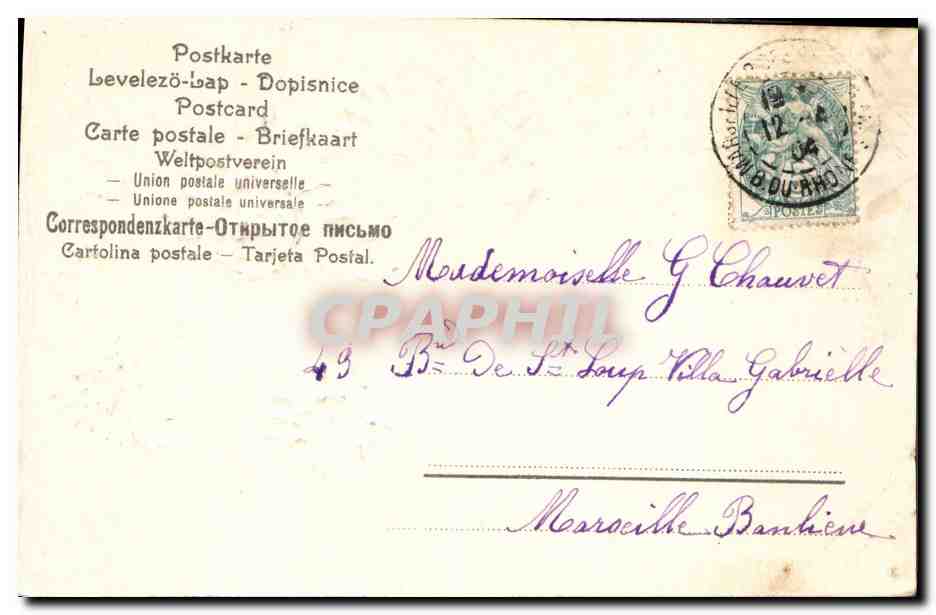 Postkarte
Levelezö-Lap - Dopisnice
Postcard
Carte postale - Briefkaart
Weltpostverein
— Union postale universelle —
— Unione postale universale —
Correspondenzkarte-Открытое письмо
Cartolina postale — Tarjeta Postal.
12 04
B. DU-RHONE
POSTES
Mademoiselle G Chauvet
CPAPHIL
43 Bd De St Loup Villa Gabrielle
Marseille Banlieue